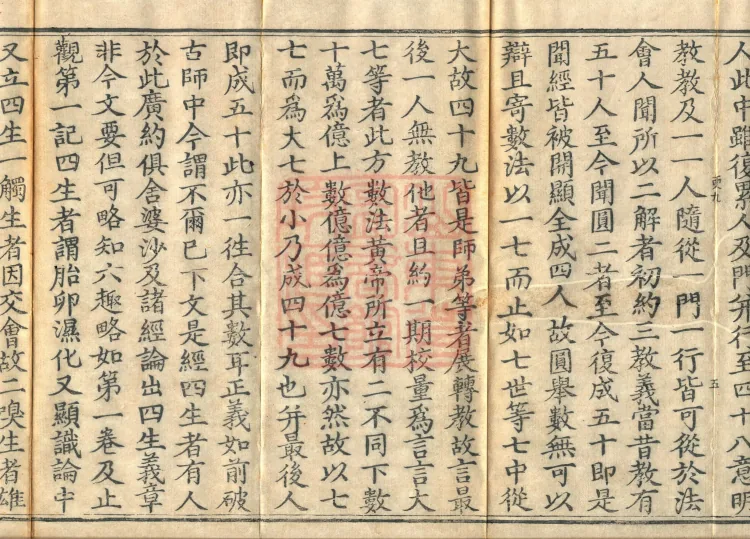 人此中雖復累人及門并行至四十八意明
更九
五
教教及一一人隨從一門一行皆可從於法
會人聞所以二解者初約三教義當昔教有
五十人至今聞圓二者至今復成五十即是
聞經皆被開顯全成四人故圓舉數無可以
辯且寄數法以一七而止如七世等七中從
大故四十九皆是師弟等者展轉教故言最
後一人無教他者且約一期校量爲言言大
七等者此方數法黃帝所立有二不同下數
十萬爲億上數億億爲億七數亦然故以七
七而爲大七於小乃成四十九也并最後人
即成五十此亦一徃合其數耳正義如前破
古師中今謂不爾已下文是經四生者有人
於此廣約俱舍婆沙及諸經論出四生義章
非今文要但可略知六趣略如第一卷及止
觀第一記四生者謂胎卵濕化又顯識論中
又立四生一觸生者因交會故二嗅生者雄